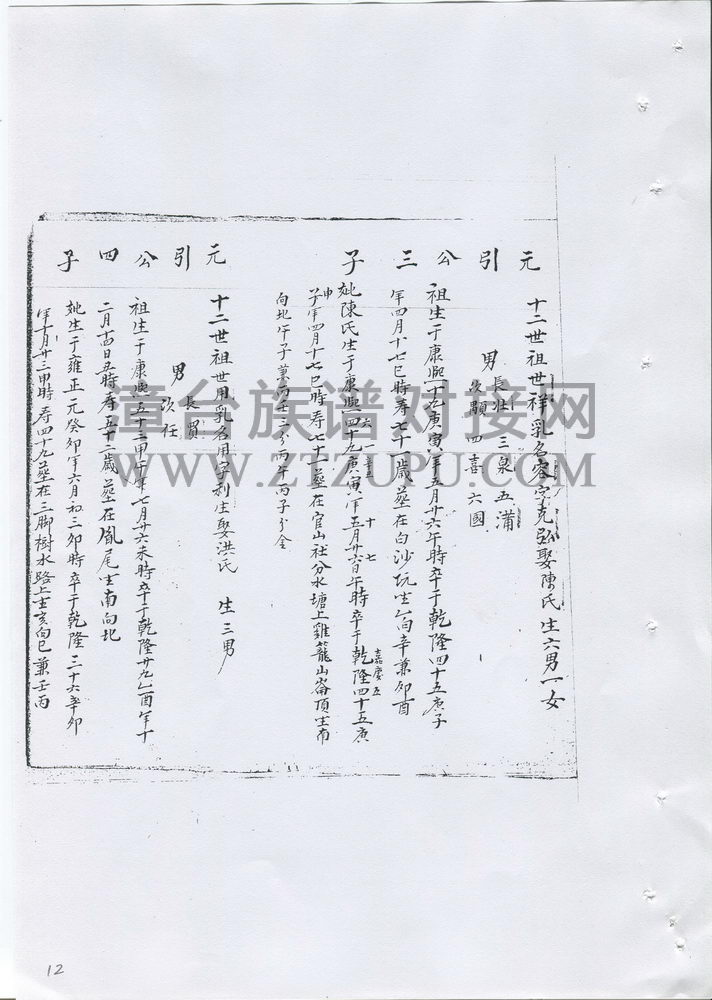 元引公三子
十二世祖世祥乳名容字克強娶陳氏生六男一女
男長壯三泉五蒲
次顯四喜六國
祖生于康熙四十九庚寅年五月廿六午時卒于乾隆四十五庚子
年四月十七巳時寿七十一歲葬在白沙坑坐
辛兼卯酉
妣陳氏生于康熙四十九庚寅年五月廿六日午時卒于乾隆四十五庚
六一
十七
嘉慶五
申
子年四月十七巳時寿七十一葬在官山社分水塘上雞籠山崙頂坐南
向北午子兼丙壬三分丙午丙子分金
元引公四子
十二世祖世用乳名用字利生娶洪氏生三男
男長買
次任
祖生于康熙五十三甲午年七月廿六未時卒于乾隆廿九乙酉年十
二月十四日丑時寿五十一歲葬在
尾坐南向北
妣生于雍正元癸卯年六月初三卯時卒于乾隆三十六辛卯
年十月廿三申時寿四十九葬在三脚樹水路上坐亥向巳兼壬丙
漳台族谱对接网
WWW.ZTZUPU.COM
12